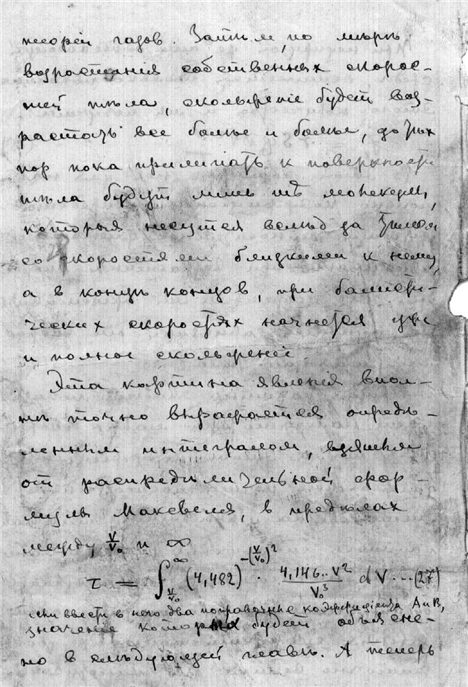 теорiи газов. Затѣм, по мѣрѣ
возрастанiя собственных скорос-
тей тѣла, скольженiе будет воз-
растать все больше и больше, до тѣх
пор пока прилипать к поверхности
тѣла будут лишь тѣ молекулы,
которыя несутся вслѣд за тѣлом
со скоростями близкими к нему,
а в концѣ концов, при баллисти-
ческих скоростях начнется уже
и полное скольженiе.
Эта картина явленiя впол-
нѣ точно выражается опредѣ-
ленным интегралом, взятым
от распредѣлительной фор-
мулы Максвелля, в предѣлах
между V/V₀ и ∞
τ = ∫_{V/V₀}^{∞} (4,482)^{-(V/V₀)²} · 4,146.. V² / V₀³ dV ... (27)
если ввести в него два поправочные коэффицiента А и В,
значенiе которых будет объясне-
но в слѣдующей главѣ. А теперь